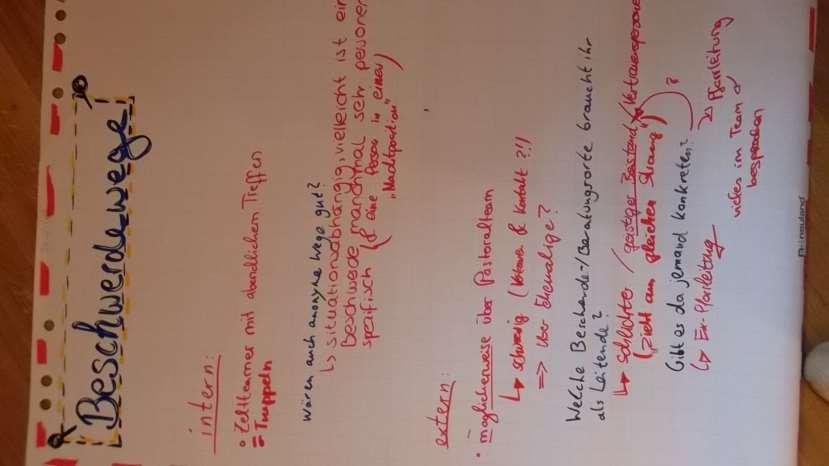 Beschwerdewege
intern:
• Zeltteamer mit abendlichem Treffen
= Truppeln
Wären auch anonyme Wege gut?
↳ situationsabhängig, vielleicht ist ein
Beschwerde manchmal sehr personen
spezifisch (& eine Person in einer
"Machtposition")
extern:
• möglicherweise über Pastoralteam
↳ schwierig ( & Kontakt?!)
=> über Ehemalige?
Welche Beschwerde-/Beratungsorte braucht ihr
als Leitende?
↳ Schlichter / geistiger Beistand / Vertrauensperson
(zieht am gleichen Strang")
Gibt es da jemand konkreten? ?
↳ Ex-Pfarrleitung ↳ Pfarrleitung
vieles im Team
besprechen
neuland